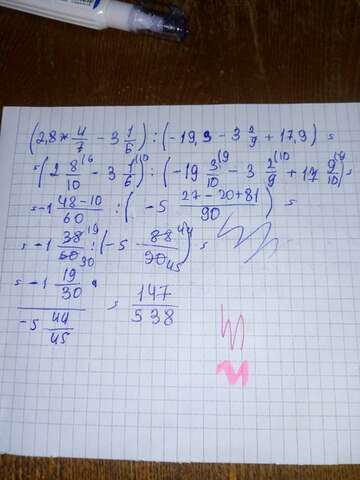 (2,8 * 4/7 - 3 1/6) : (-19,3 - 3 2/9 + 17,9) =
= (2 8/10 \6 - 3 1/6 \10) : (-19 3/10 \9 - 3 2/9 \10 + 17 9/10 \9) =
= -1 (48-10)/60 : (-5 (27-20+81)/90) =
= -1 38/60 19 30 : (-5 88/90 44 45) =
= (-1 19/30)/(-5 44/45) = 147/538